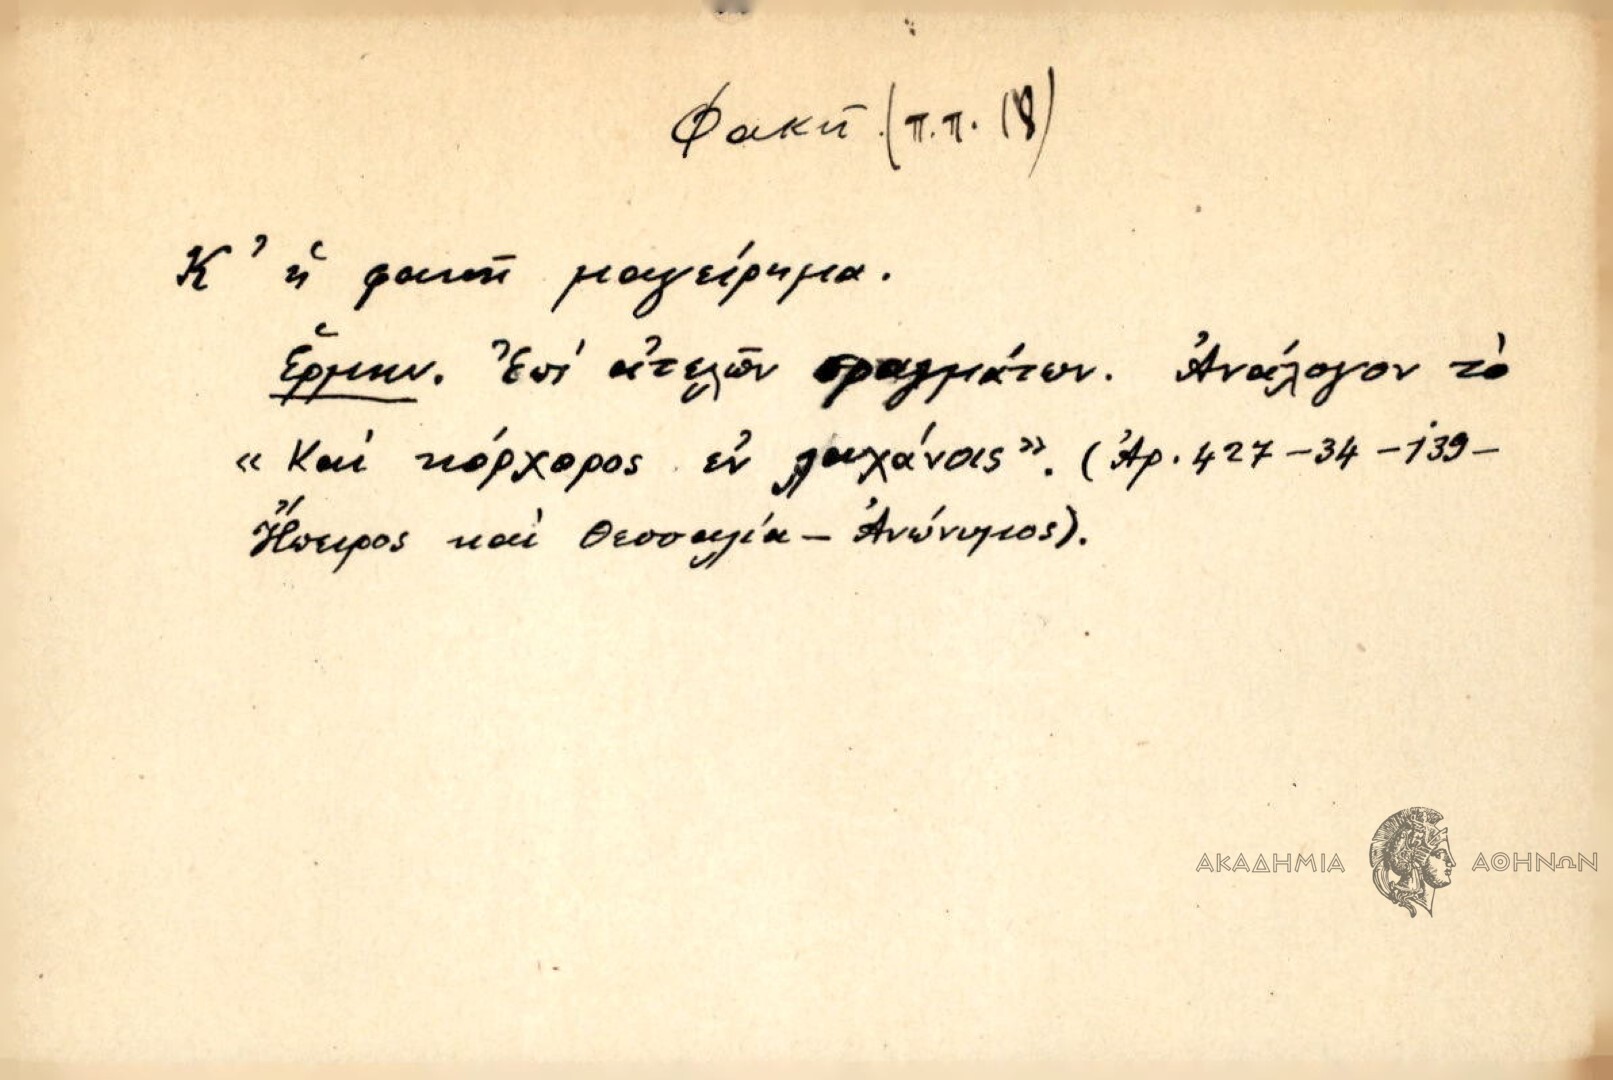 Φακῆ (π.π. 18)
Κ' ἡ φακῆ μαγείρημα.
Ἑρμην. Ἐπὶ ἀτελῶν πραγμάτων. Ἀνάλογον τὸ
« Καὶ κόρχορος ἐν λαχάνοις ». (Ἀρ. 427 – 34 – 139 –
Ἤπειρος καὶ Θεσσαλία – Ἀνώνυμος).
ΑΚΑΔΗΜΙΑ ΑΘΗΝΩΝ